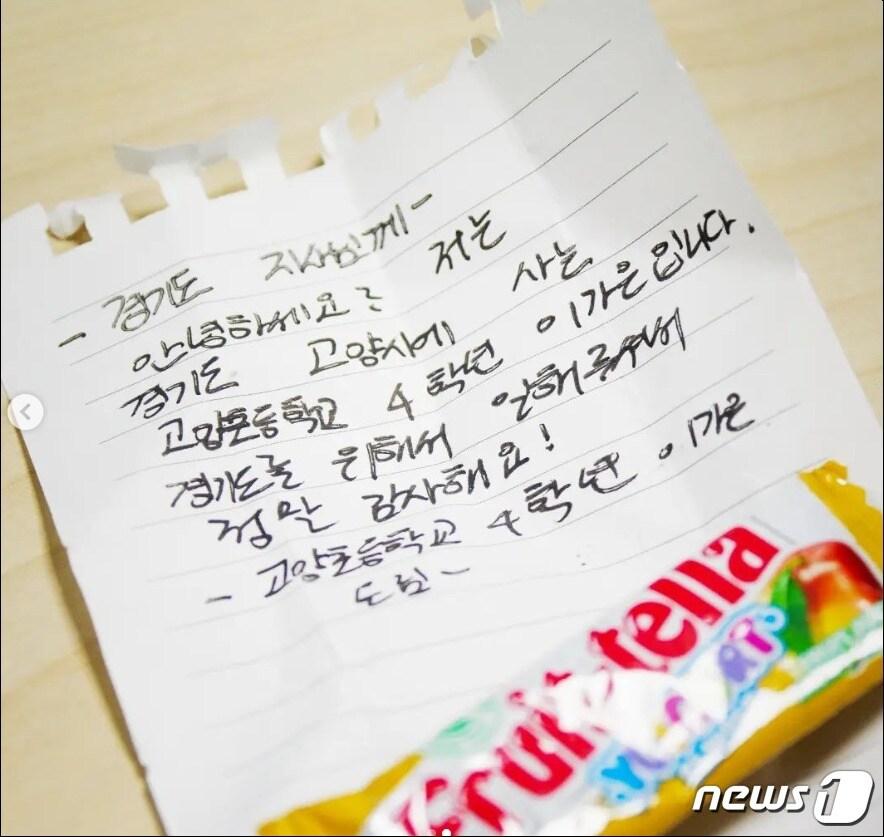 - 경기도 지사님께 -
안녕하세요? 저는
경기도 고양시에 사는
고양초등학교 4학년 이가은입니다.
경기도를 위해서 일해주셔서
정말 감사해요!
- 고양초등학교 4학년 이가은
드림 -
Fruittella
YOGURT
news1